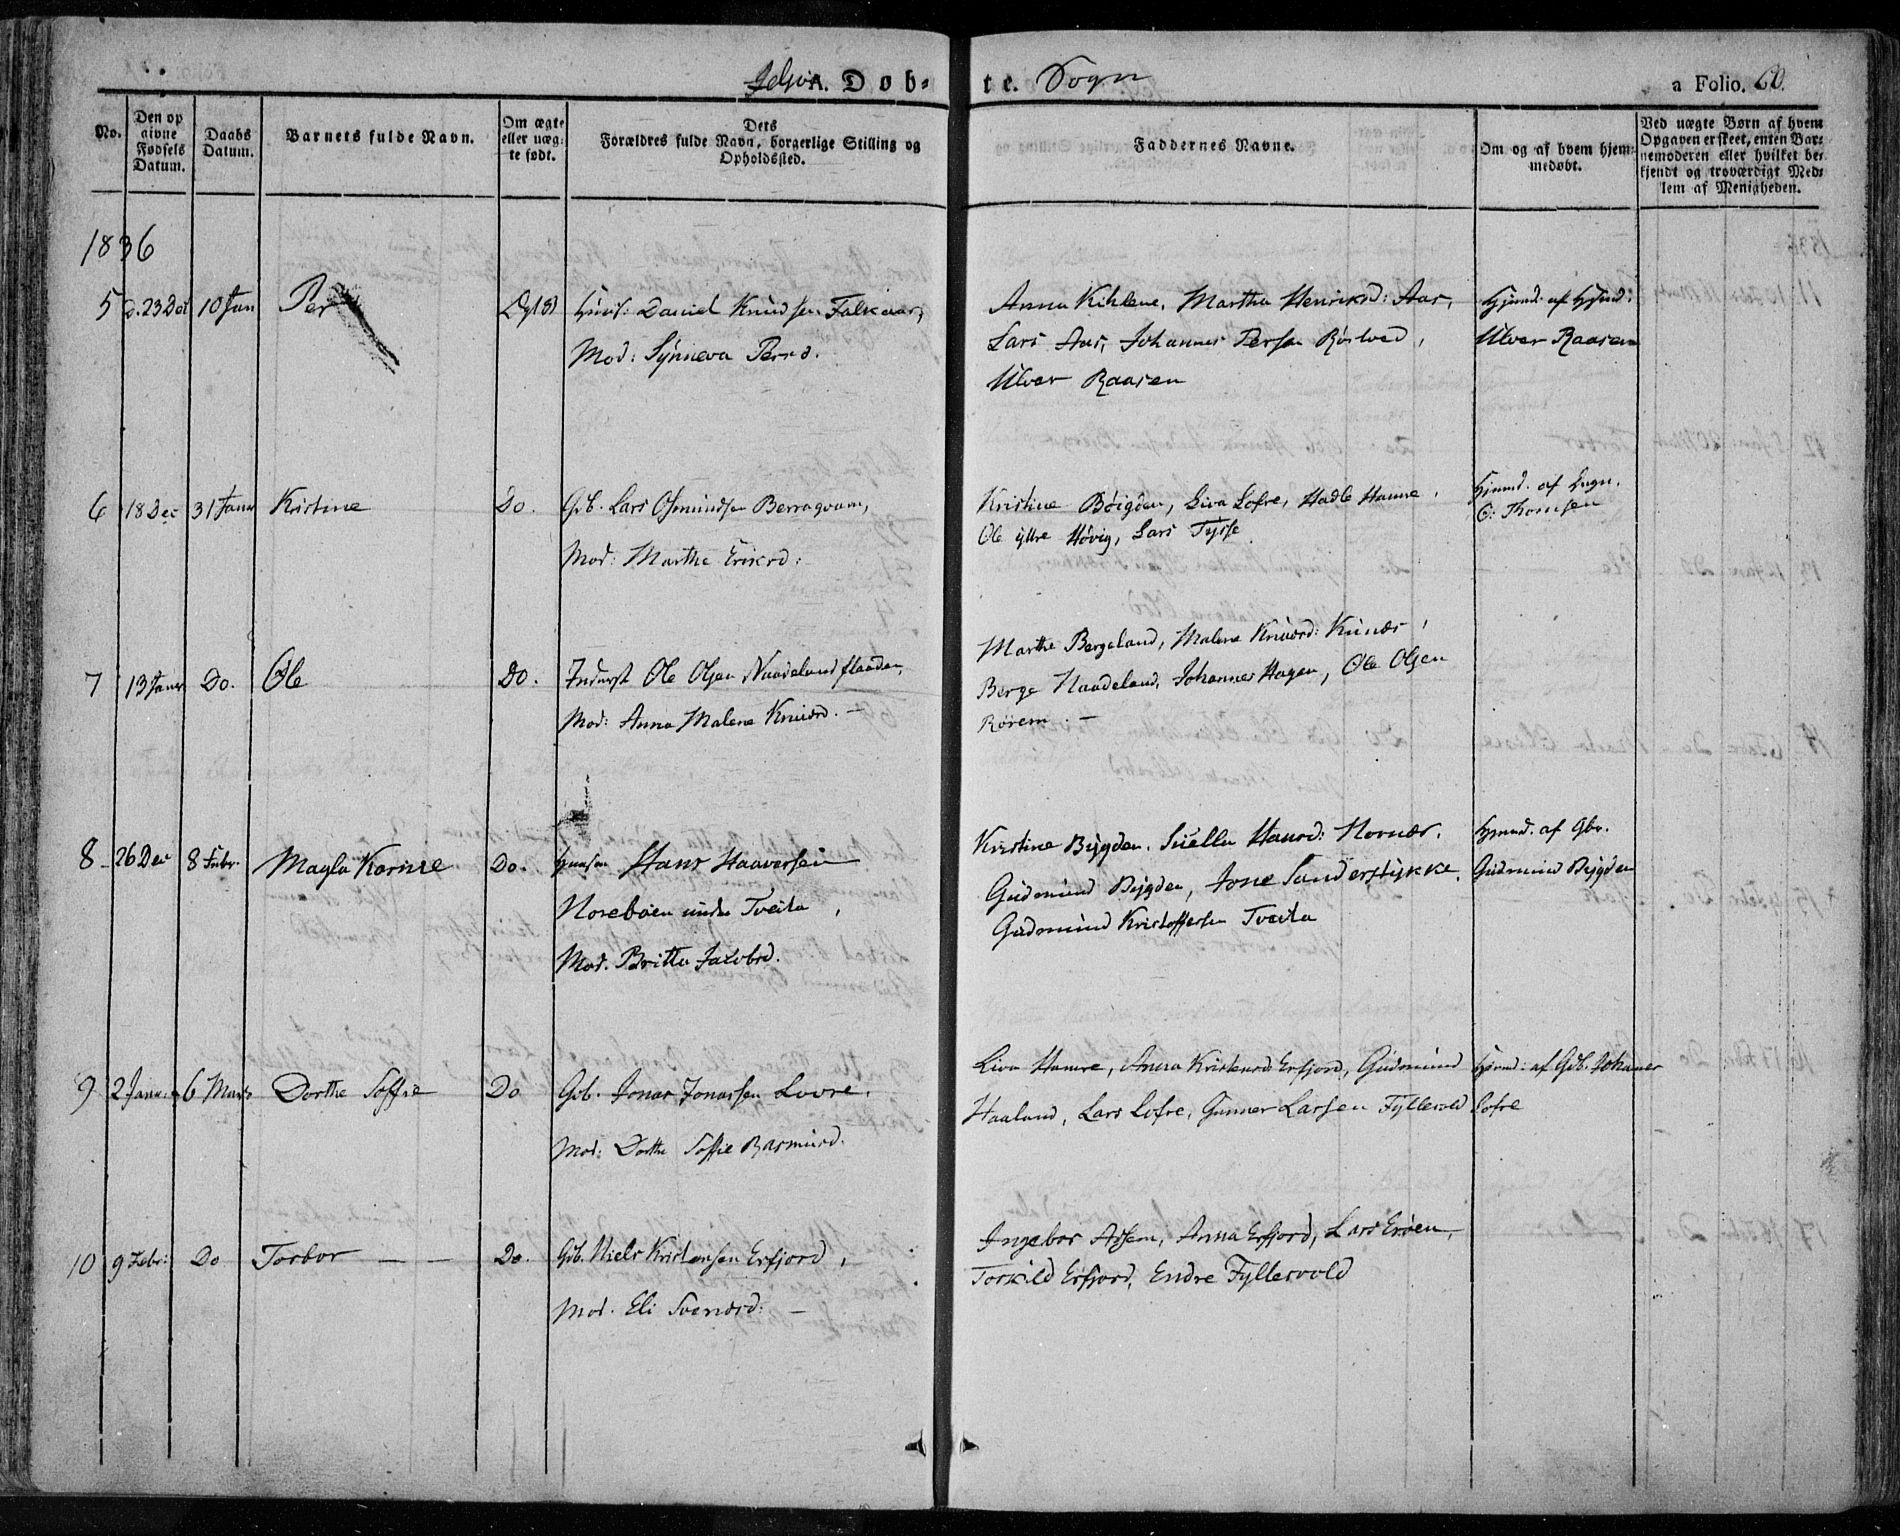 A. Døb-te. Sogn
a Folio. 60.
No.
Den opgivne Fødsels Datum.
Daabs Datum.
Barnets fulde Navn.
Om ægte eller uægte født.
Dets Forældres fulde Navn, borgerlige Stilling og Opholdssted.
Faddernes Navne.
Om og af hvem hjemmedøbt.
Ved uægte Børn af hvem Opgaven er skeet, enten Barnemoderen eller hvilket bekjendt og troværdigt Medlem af Menigheden.
1836
5 d. 23 Det 10 Jan Per Daniel Knudsen Falkaar,
Mod: Synneva Persd.
Anna Kihlene, Martha Henriksd: Aas,
Lars Aas, Johannes Persen Røslved,
Ulver Raasen
Hjemd. af
Ulver Raasen
6 18 Dec 31 Janr Kistine Do. Gb. Lars Osmundsen Berragvam,
Mod: Marthe Eriksd:
Kristine Bøigden, Siva Lofre, Hadle Hamre,
Ole ytre Høvig, Lars Tysse
Hjemd. af
C: Thomsen
7 13 Janr Do. Ole Do. Inderst Ole Olsen Naadelandflaaden,
Mod: Anna Malene Knudsd. —
Marthe Bergeland, Malene Knudsd:
Berge Naadeland, Johannes Hagen, Ole Olsen
Rørem. —
8 26 Dec 8 Febr. Magla Karine Do. Huusm Hans Haaversen
Nosebøen under Tveita,
Mod. Britta Jacobsd.
Kristine Bygden, Siella Hansd: Hovnæs,
Gudmund Bygden, Jone Sanderstykke,
Gudmund Kristoffersen Tveita
Hjemd. af Gbr.
Gudmund Bygden
9 2 Janu. 6 Marts Dorthe Soffie Do Gb. Jonas Jonassen Lovre,
Mod: Dorthe Soffie Rasmusd.
Liva Hamre, Anna Kristensd Erfjord, Gudmund
Haaland, Lars Lofre, Gunner Larsen Fyllesvold
Hjemd: af Gb. Johannes
Lofre
10 9 Febr: Do Torbor — — Do. Gb. Niels Kristensen Erfjord,
Mod. Eli Svensd: —
Ingebor Assem, Anna Erfjord, Lars Erøen,
Torkild Erfjord, Endre Fyllesvold